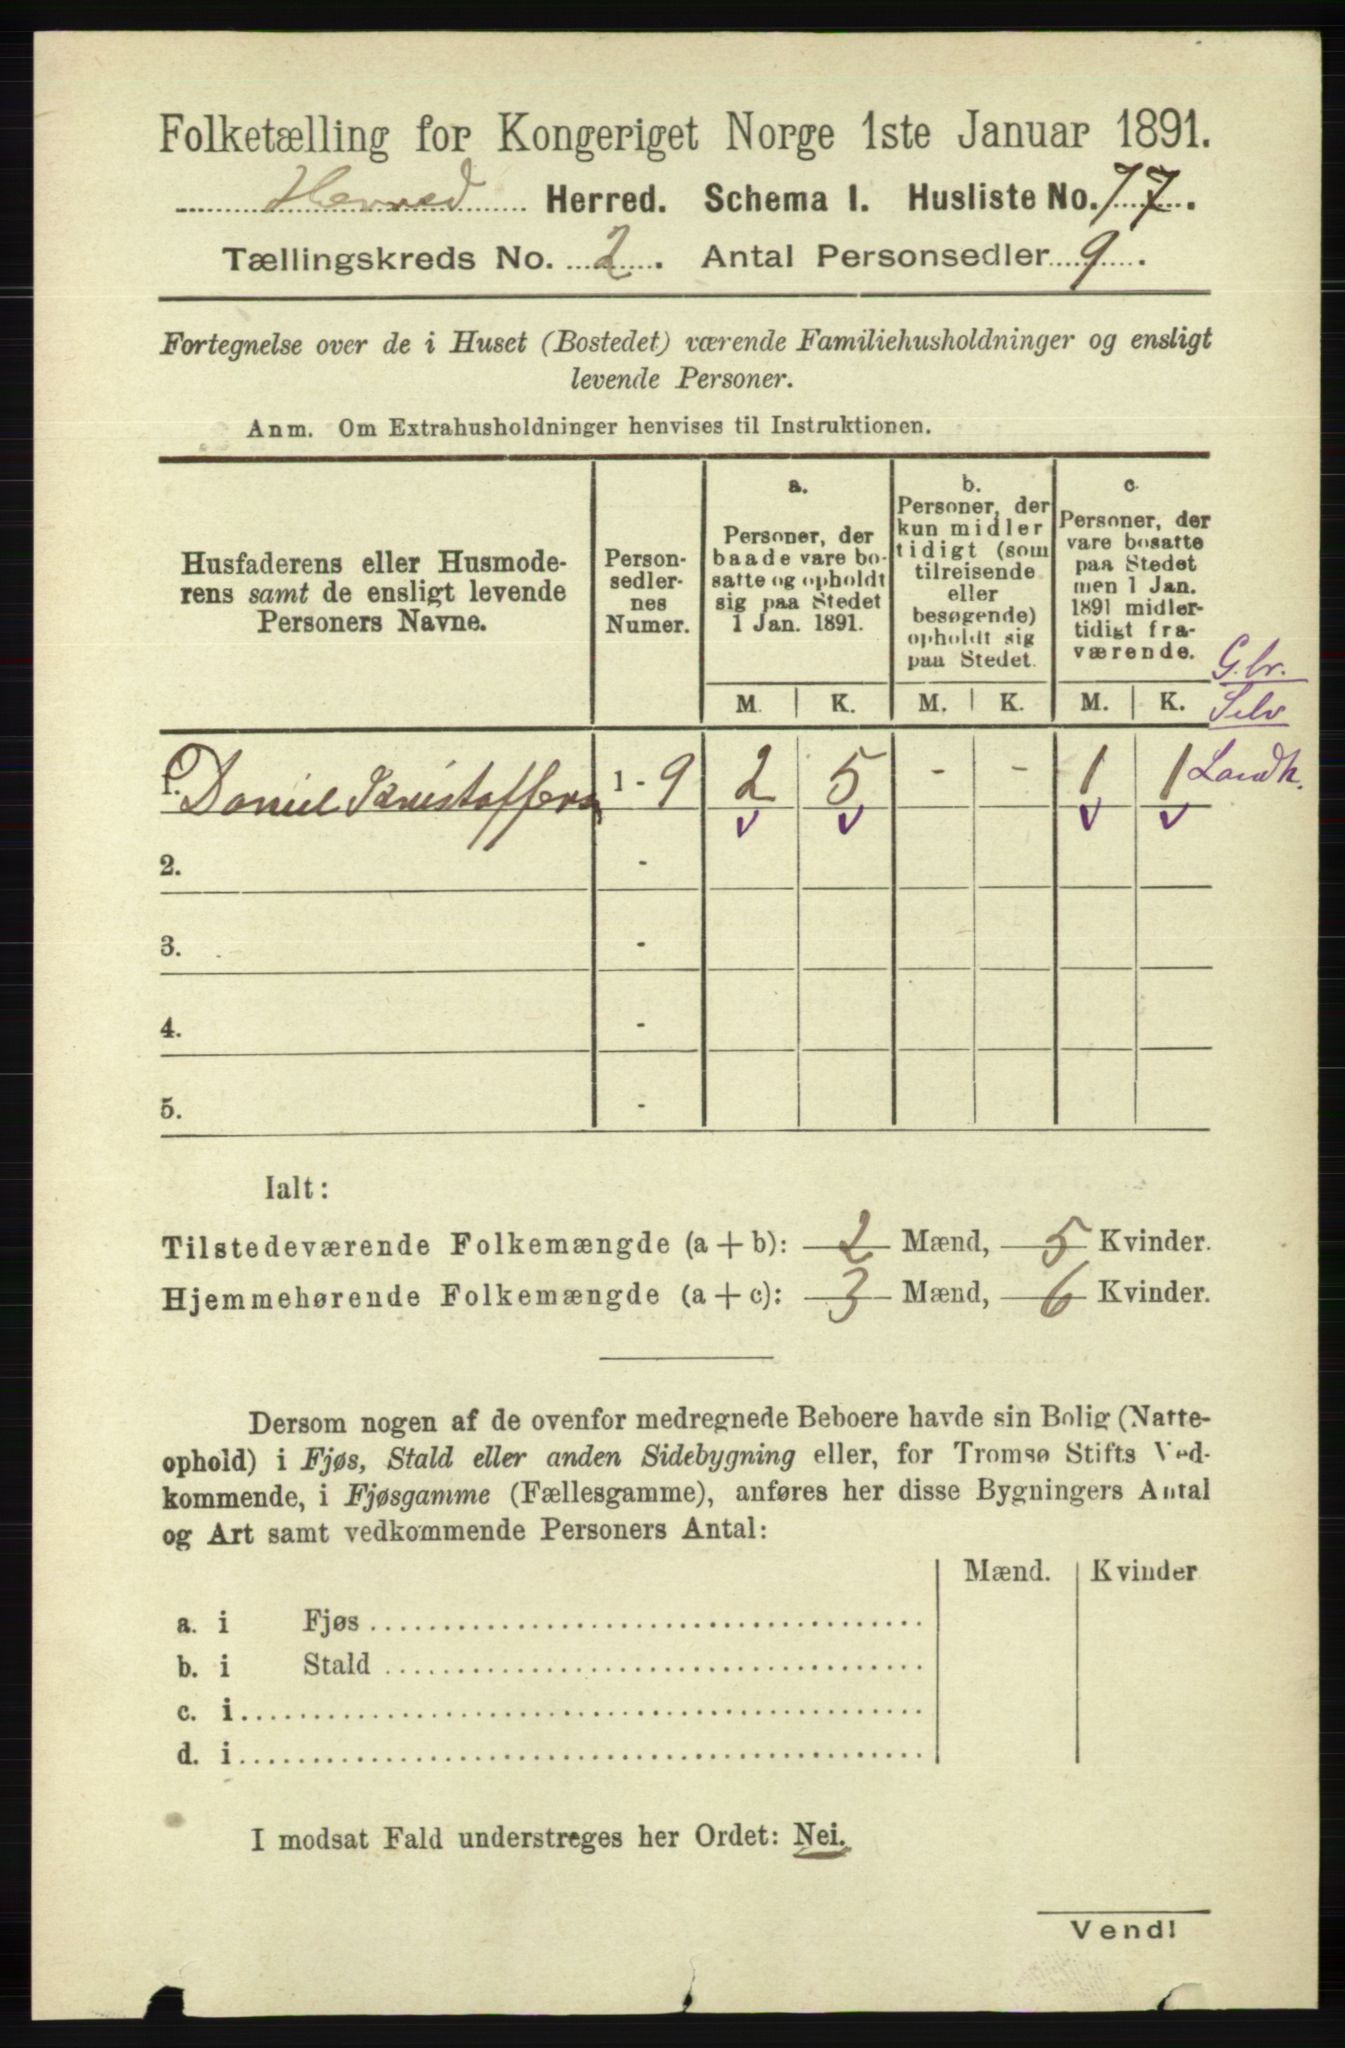 Folketælling for Kongeriget Norge 1ste Januar 1891.
Herred Herred. Schema I. Husliste No. 77.
Tællingskreds No. 2. Antal Personsedler 9.
Fortegnelse over de i Huset (Bostedet) værende Familiehusholdninger og ensligt
levende Personer.
Anm. Om Extrahusholdninger henvises til Instruktionen.
Husfaderens eller Husmode-
rens samt de ensligt levende
Personers Navne.
Person-
sedler-
nes
Numer.
a.
Personer, der
baade vare bo-
satte og opholdt
sig paa Stedet
1 Jan. 1891.
b.
Personer, der
kun midler
tidigt (som
tilreisende
eller
besøgende)
opholdt sig
paa Stedet.
c
Personer, der
vare bosatte
paa Stedet
men 1 Jan.
1891 midler-
tidigt fra-
værende.
G.br.
Selv
M. K. M. K. M. K.
1. Daniel Kristoffersen 1 - 9 2 5 - - 1 1 Landh.
2. -
3. -
4. -
5. -
Ialt:
Tilstedeværende Folkemængde (a + b): 2 Mænd, 5 Kvinder.
Hjemmehørende Folkemængde (a + c): 3 Mænd, 6 Kvinder.
Dersom nogen af de ovenfor medregnede Beboere havde sin Bolig (Natte-
ophold) i Fjøs, Stald eller anden Sidebygning eller, for Tromsø Stifts Ved-
kommende, i Fjøsgamme (Fællesgamme), anføres her disse Bygningers Antal
og Art samt vedkommende Personers Antal:
Mænd. Kvinder
a. i Fjøs
b. i Stald
c. i
d. i
I modsat Fald understreges her Ordet: Nei.
Vend!